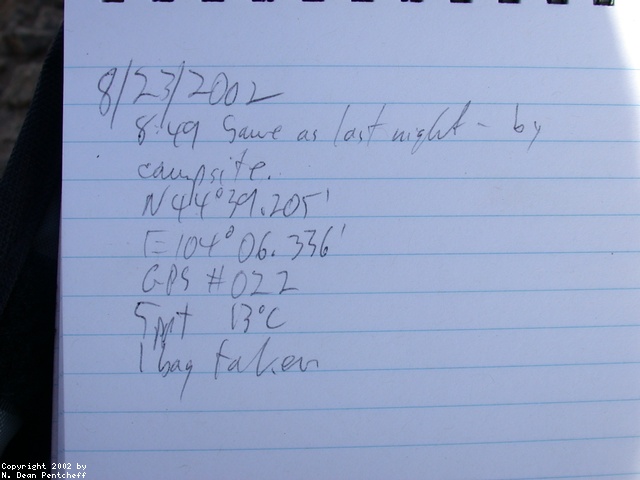 8/23/2002
8:49 Same as last night - by
campsite.
N 44°39.205'
E 104°06.336'
GPS #022
5ppt 13°C
1 bag taken
Copyright 2002 by
N. Dean Pentcheff